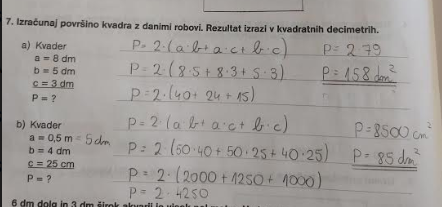 7. Izračunaj površino kvadra z danimi robovi. Rezultat izrazi v kvadratnih decimetrih.
a) Kvader
a = 8 dm
b = 5 dm
c = 3 dm
P = ?
P = 2·(a·b+a·c+b·c)
P = 2·(8·5+8·3+5·3)
P = 2·(40+24+15)
P = 2·79
P = 158 dm²
b) Kvader
a = 0,5 m = 5 dm
b = 4 dm
c = 25 cm
P = ?
P = 2·(a·b+a·c+b·c)
P = 2 (50·40+50·25+40·25)
P = 2·(2000+1250+1000)
P = 2·4250
P = 8500 cm²
P = 85 dm²
6 dm dolg in 3 dm širok akvarij je